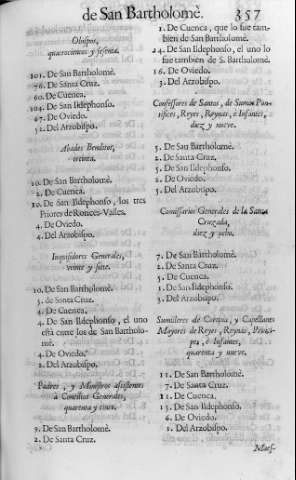 de San Bartholomè. 357
Obispos,
quatrocientos y sesenta.
101. De San Bartholomè.
76. De Santa Cruz.
60. De Cuenca.
104. De San Ildephonso.
67. De Oviedo.
52. Del Arzobispo.
Abades Benditos,
treinta.
10. De San Bartholomè.
2. De Cuenca.
10. De San Ildephonso, los tres
Priores de Ronces-Valles.
4. De Oviedo.
4. Del Arzobispo.
Inquisidores Generales,
veinte y siete.
10. De San Bartholomè.
5. de Santa Cruz.
4. De Cuenca.
4. De San Ildephonso, el uno
està entre los de San Bartholo-
mè.
4. De Oviedo.
2. Del Arzobispo.
Padres, y Ministros assistentes
à Concilios Generales,
quarenta y cinco.
9. De San Bartholomè.
2. De Santa Cruz.
1. De Cuenca, que lo fue tam-
bien de San Bartholomè.
24. De San Ildephonso, el uno lo
fue tambien de S. Bartholomè.
16. De Oviedo.
3. Del Arzobispo.
Confessores de Santos, de Sumos Pon-
tifices, Reyes, Reynas, è Infantes,
diez y nueve.
5. De San Bartholomè.
2. De Santa Cruz.
5. De San Ildephonso.
2. De Oviedo.
5. Del Arzobispo.
Comissarios Generales de la Santa
Cruzada,
diez y ocho.
7. De San Bartholomè.
2. De Santa Cruz.
3. De Cuenca.
1. De San Ildephonso.
5. Del Arzobispo.
Sumilleres de Cortina, y Capellanes
Mayores de Reyes, Reynas, Princi-
pes, è Infantes,
quarenta y nueve.
11. De San Bartholomè.
7. De Santa Cruz.
11. De Cuenca.
13. De San Ildephonso.
6. De Oviedo.
1. Del Arzobispo.
Maes-